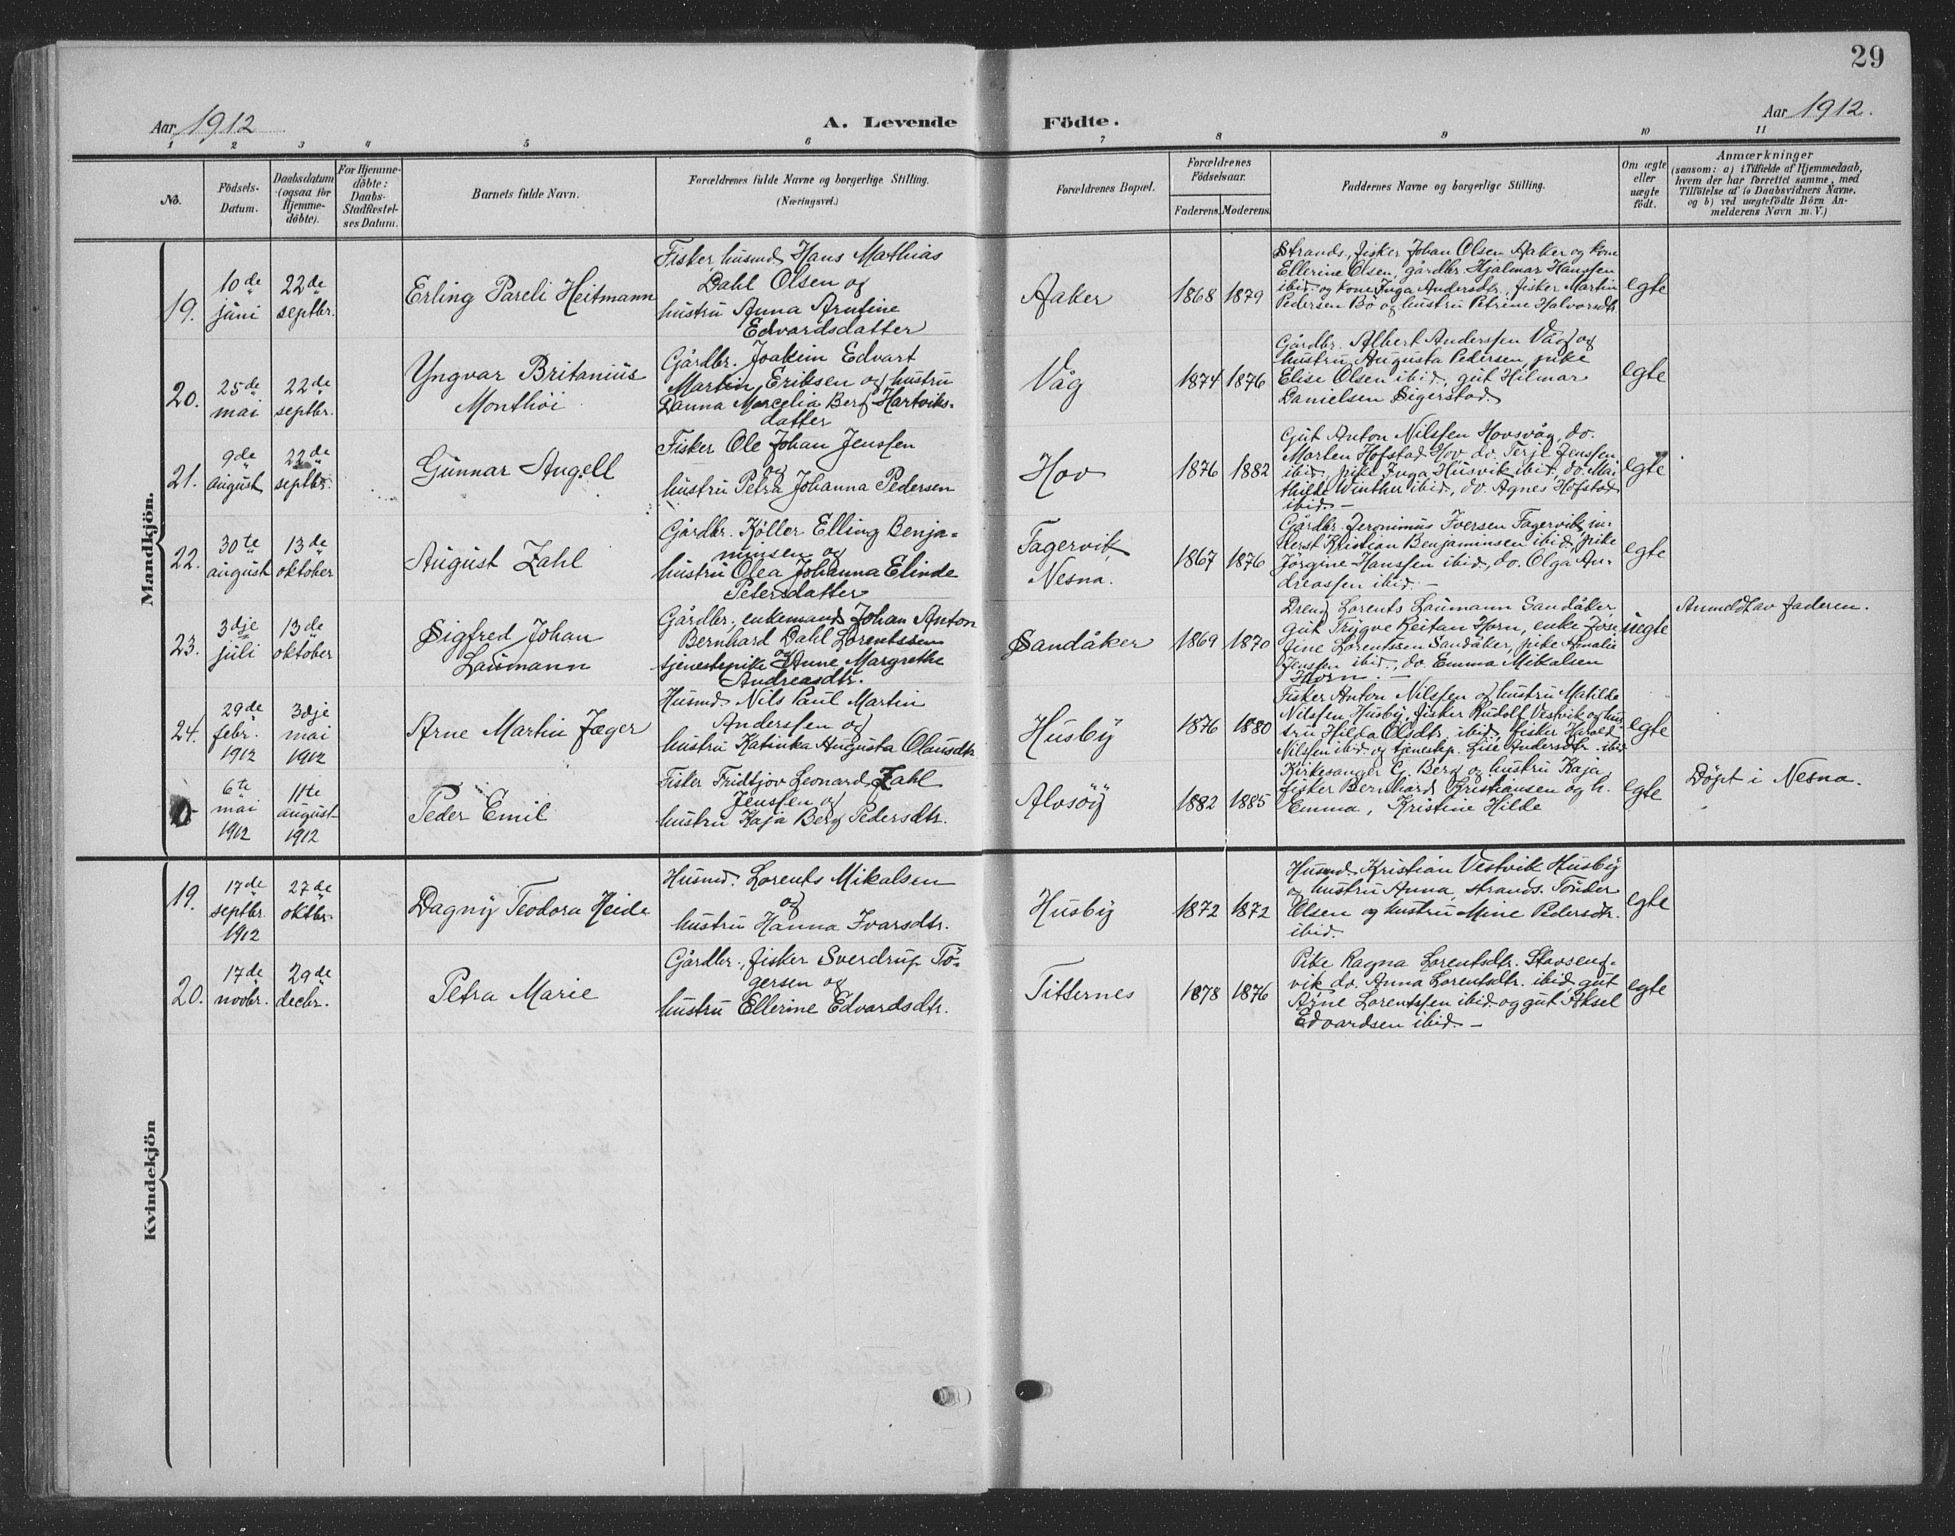 29
Aar 1912
A. Levende
Födte.
Aar 1912.
1 2 3 4 5 6 7 8 9 10 11
No.
Födsels-
Datum.
Daabsdatum
(ogsaa for
Hjemme-
döbte).
For Hjemme-
döbte:
Daabs-
Stadfæstel-
ses Datum.
Barnets fulde Navn.
Forældrenes fulde Navne og borgerlige Stilling.
(Næringsvei.)
Forældrenes Bopæl.
Forældrenes
Födselsaar.
Faderens. Moderens.
Faddernes Navne og borgerlige Stilling.
Om ægte
eller
uægte
födt.
Anmærkninger
(sansom: a) i Tilfælde af Hjemmedaab,
hvem der har forrettet samme, med
Tilföielse af to Daabsvidners Navne,
og b) ved uægtefödte Börn An-
melderens Navn m. V.)
Mandkjön.
19.
10de
juni
22de
septbr.
Erling Pareli Heitmann
Fisker, husmd Hans Mathias
Dahl Olsen og
hustru Anna Arntine
Edvardsdatter
Aaker
1868 1879
Strands., fisker Johan Olsen Aaker og kone
Ellerine Olsen, gårdbr. Hjalmar Hanssen
ibid. og kone Inga Andersdtr., fisker Martin
Pedersen Bö og hustru Petrine Halvorsdtr.
egte
20.
25de
mai
22de
septbr.
Yngvar Britanius
Monthöi
Gårdbr. Joakim Edvart
Martin Eriksen og hustru
Danna Marcelia Berg Hartviks-
datter
Våg
1874 1876
Gårdbr. Albert Anderssen Våg og
hustru Augusta Pedersen, pike
Elise Olsen ibid., gut Hilmar
Danielsen Sigerstad.
egte
21.
9de
august
22de
septbr.
Gunnar Angell
Fisker Ole Johan Jenssen
og
hustru Petra Johanna Pedersen
Hov
1876 1882
Gut Anton Nilssen Hovsvåg, do.
Morten Hofstad Hov, do. Terje Jenssen
ibid., pike Inga Husvik ibid., do. Ma-
thilde Winther ibid., do. Agnes Hofstad
ibid. —
egte
22.
30te
august
13de
oktober
August Zahl
Gårdbr. Köller Elling Benja-
minsen og
hustru Olea Johanna Elinde
Petersdatter
Fagervik
Nesna.
1867 1876
Gårdbr. Jeronimus Iversen Fagervik, in-
derst Kristian Benjaminsen ibid., pike
Jörgine Hanssen ibid., do. Olga An-
dreassen ibid. —
egte
23.
3dje
juli
13de
oktober
Sigfred Johan
Laumann
Gårdbr., enkemand Johan Anton
Bernhard Dahl Lorentssen
og
tjenestepike Anne Margrethe
Andreasdtr.
Sandåker
1869 1870
Dreng Lorents Laumann Sandåker,
gut Trygve Reitan Horn, enke Jere-
fine Lorentssen Sandåker, pike Amalie
Jenssen ibid., do. Emma Mikalsen
Horn. —
uegte
Anmeldt av faderen.
24.
29de
febr.
1912
3dje
mai
1912
Arne Martin Jæger
Husmd Nils Paul Martin
Anderssen og
hustru Katinka Augusta Olausdtr.
Husby
1876 1880
Fisker Anton Nilssen og hustru Matilde
Nilssen Husby, fisker Rudolf Vestvik og hus-
tru Hilda Olsdtr. ibid., fisker Harald
Nilssen ibid. og tjenestep. Lise Andersdtr. ibid.
egte
0
6te
mai
1912
11te
august
1912
Peder Emil
Fisker Fridtjov Leonard Zahl
Jenssen og
hustru Kaja Berg Pedersdtr.
Alvsöy
1882 1885
Kirkesanger G. Berg og hustru Kaja,
fisker Bernhard Kristiansen og h.
Emma, Kristine Hilde
egte
Döpt i Nesna.
Kvindekjön
19.
17de
septbr.
1912
27de
oktbr.
Dagny Teodora Heide
Husmd. Lorents Mikalsen
og
hustru Hanna Ivarsdtr.
Husby
1872 1872
Husmd Kristian Vestvik Husby
og hustru Anna, strands. Tönder
Olsen og hustru Mine Pedersdtr.
ibid.
egte
20.
17de
novbr.
29de
decbr.
Petra Marie
Gårdbr., fisker Sverdrup Tö-
gersen og
hustru Ellerine Edvardsdtr.
Titternes
1878 1876
Pike Ragna Lorentsdtr. Stavseng-
vik, do. Anna Lorentsdtr. ibid., gut
Arne Lorentssen ibid. og gut Aksel
Edvardsen ibid. —
egte